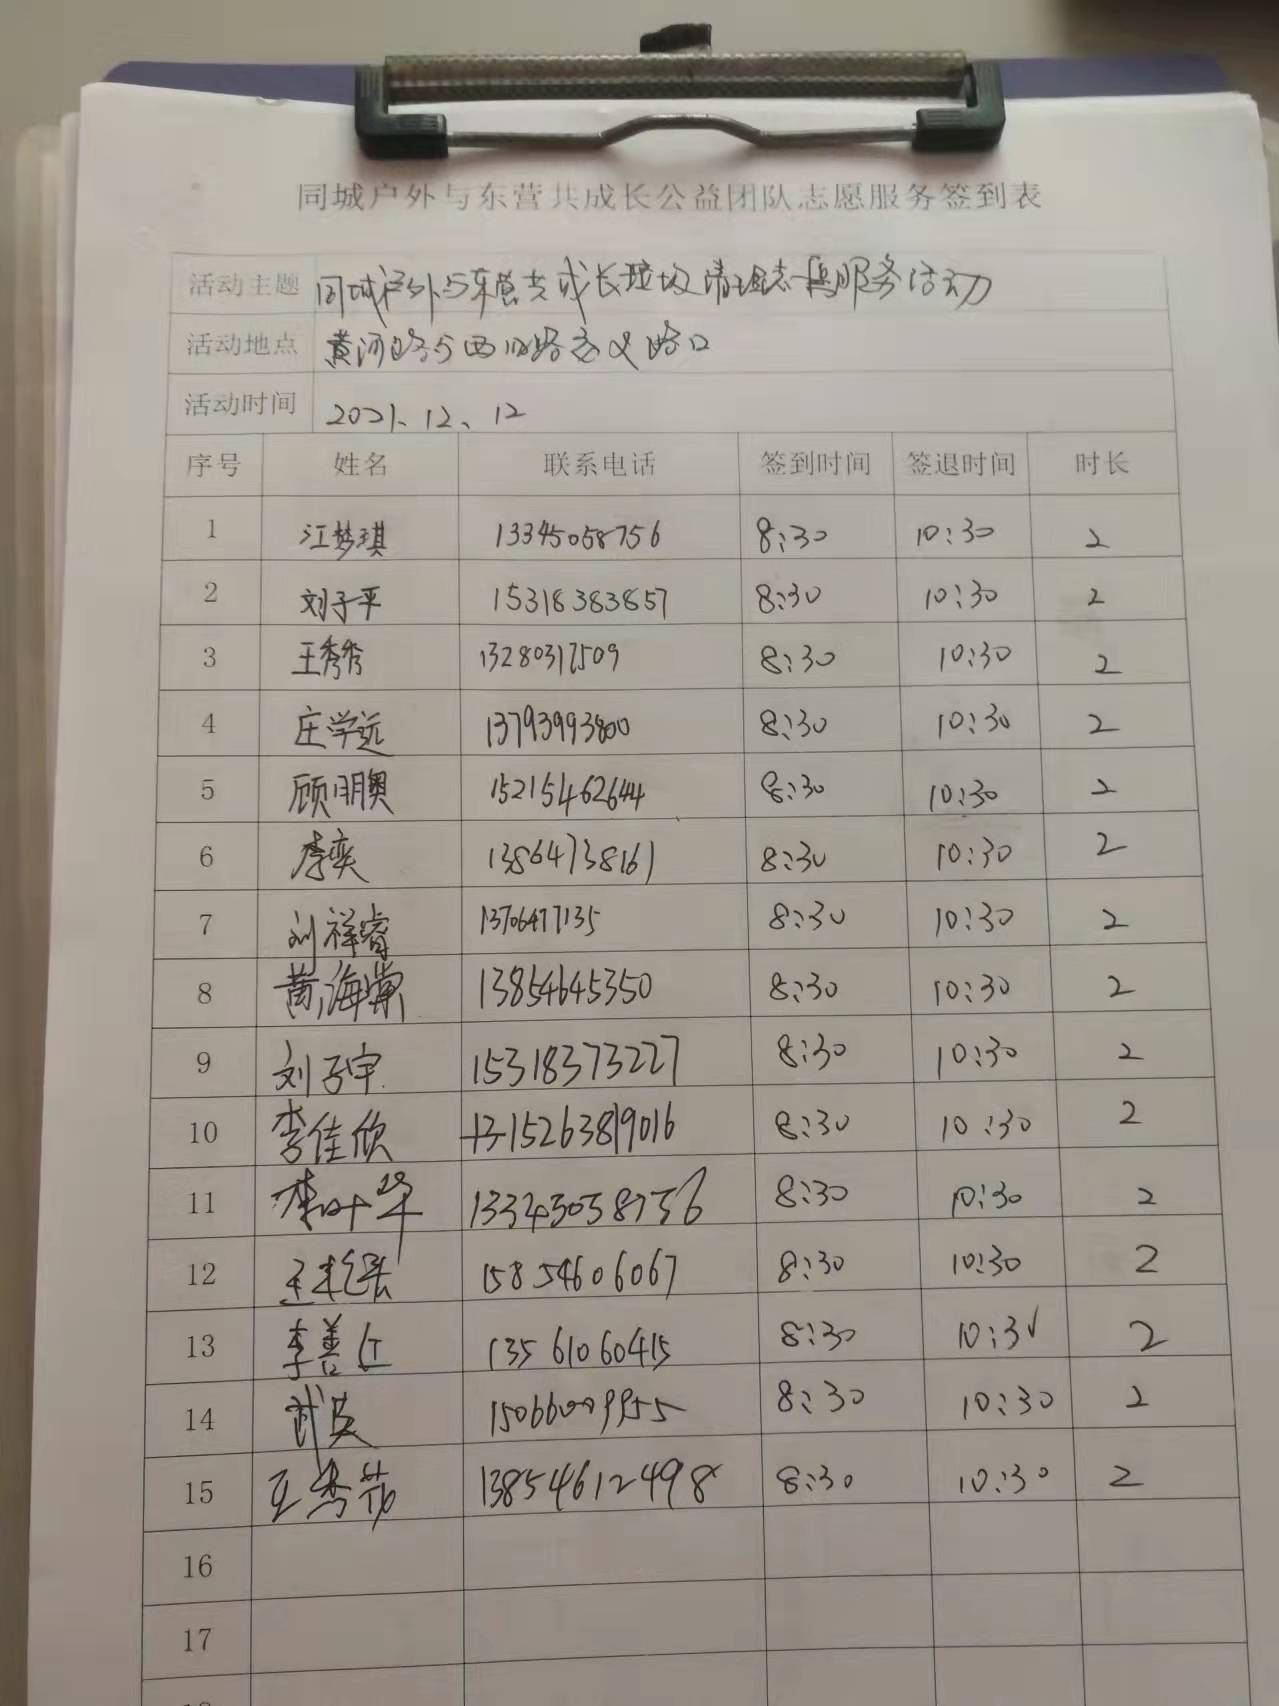 同城户外与东营共成长公益团队志愿服务签到表
活动主题 同城户外与东营共成长垃圾清理志愿服务活动
活动地点 黄河路与西四路交叉路口
活动时间 2021、12、12
序号 姓名 联系电话 签到时间 签退时间 时长
1 江梦琪 13345058756 8:30 10:30 2
2 刘子平 15318383857 8:30 10:30 2
3 王秀秀 13280317509 8:30 10:30 2
4 庄学远 13793993800 8:30 10:30 2
5 顾明奥 15215462644 8:30 10:30 2
6 李奕 13864738161 8:30 10:30 2
7 刘祥睿 13706477135 8:30 10:30 2
8 黄海棠 13854645350 8:30 10:30 2
9 刘子宇 15318373227 8:30 10:30 2
10 李佳欣 15263819016 8:30 10:30 2
11 李叶华 13345058756 8:30 10:30 2
12 15854606067 8:30 10:30 2
13 李善仕 13561060415 8:30 10:30 2
14 武英 15066009955 8:30 10:30 2
15 王秀茹 13854612498 8:30 10:30 2
16
17